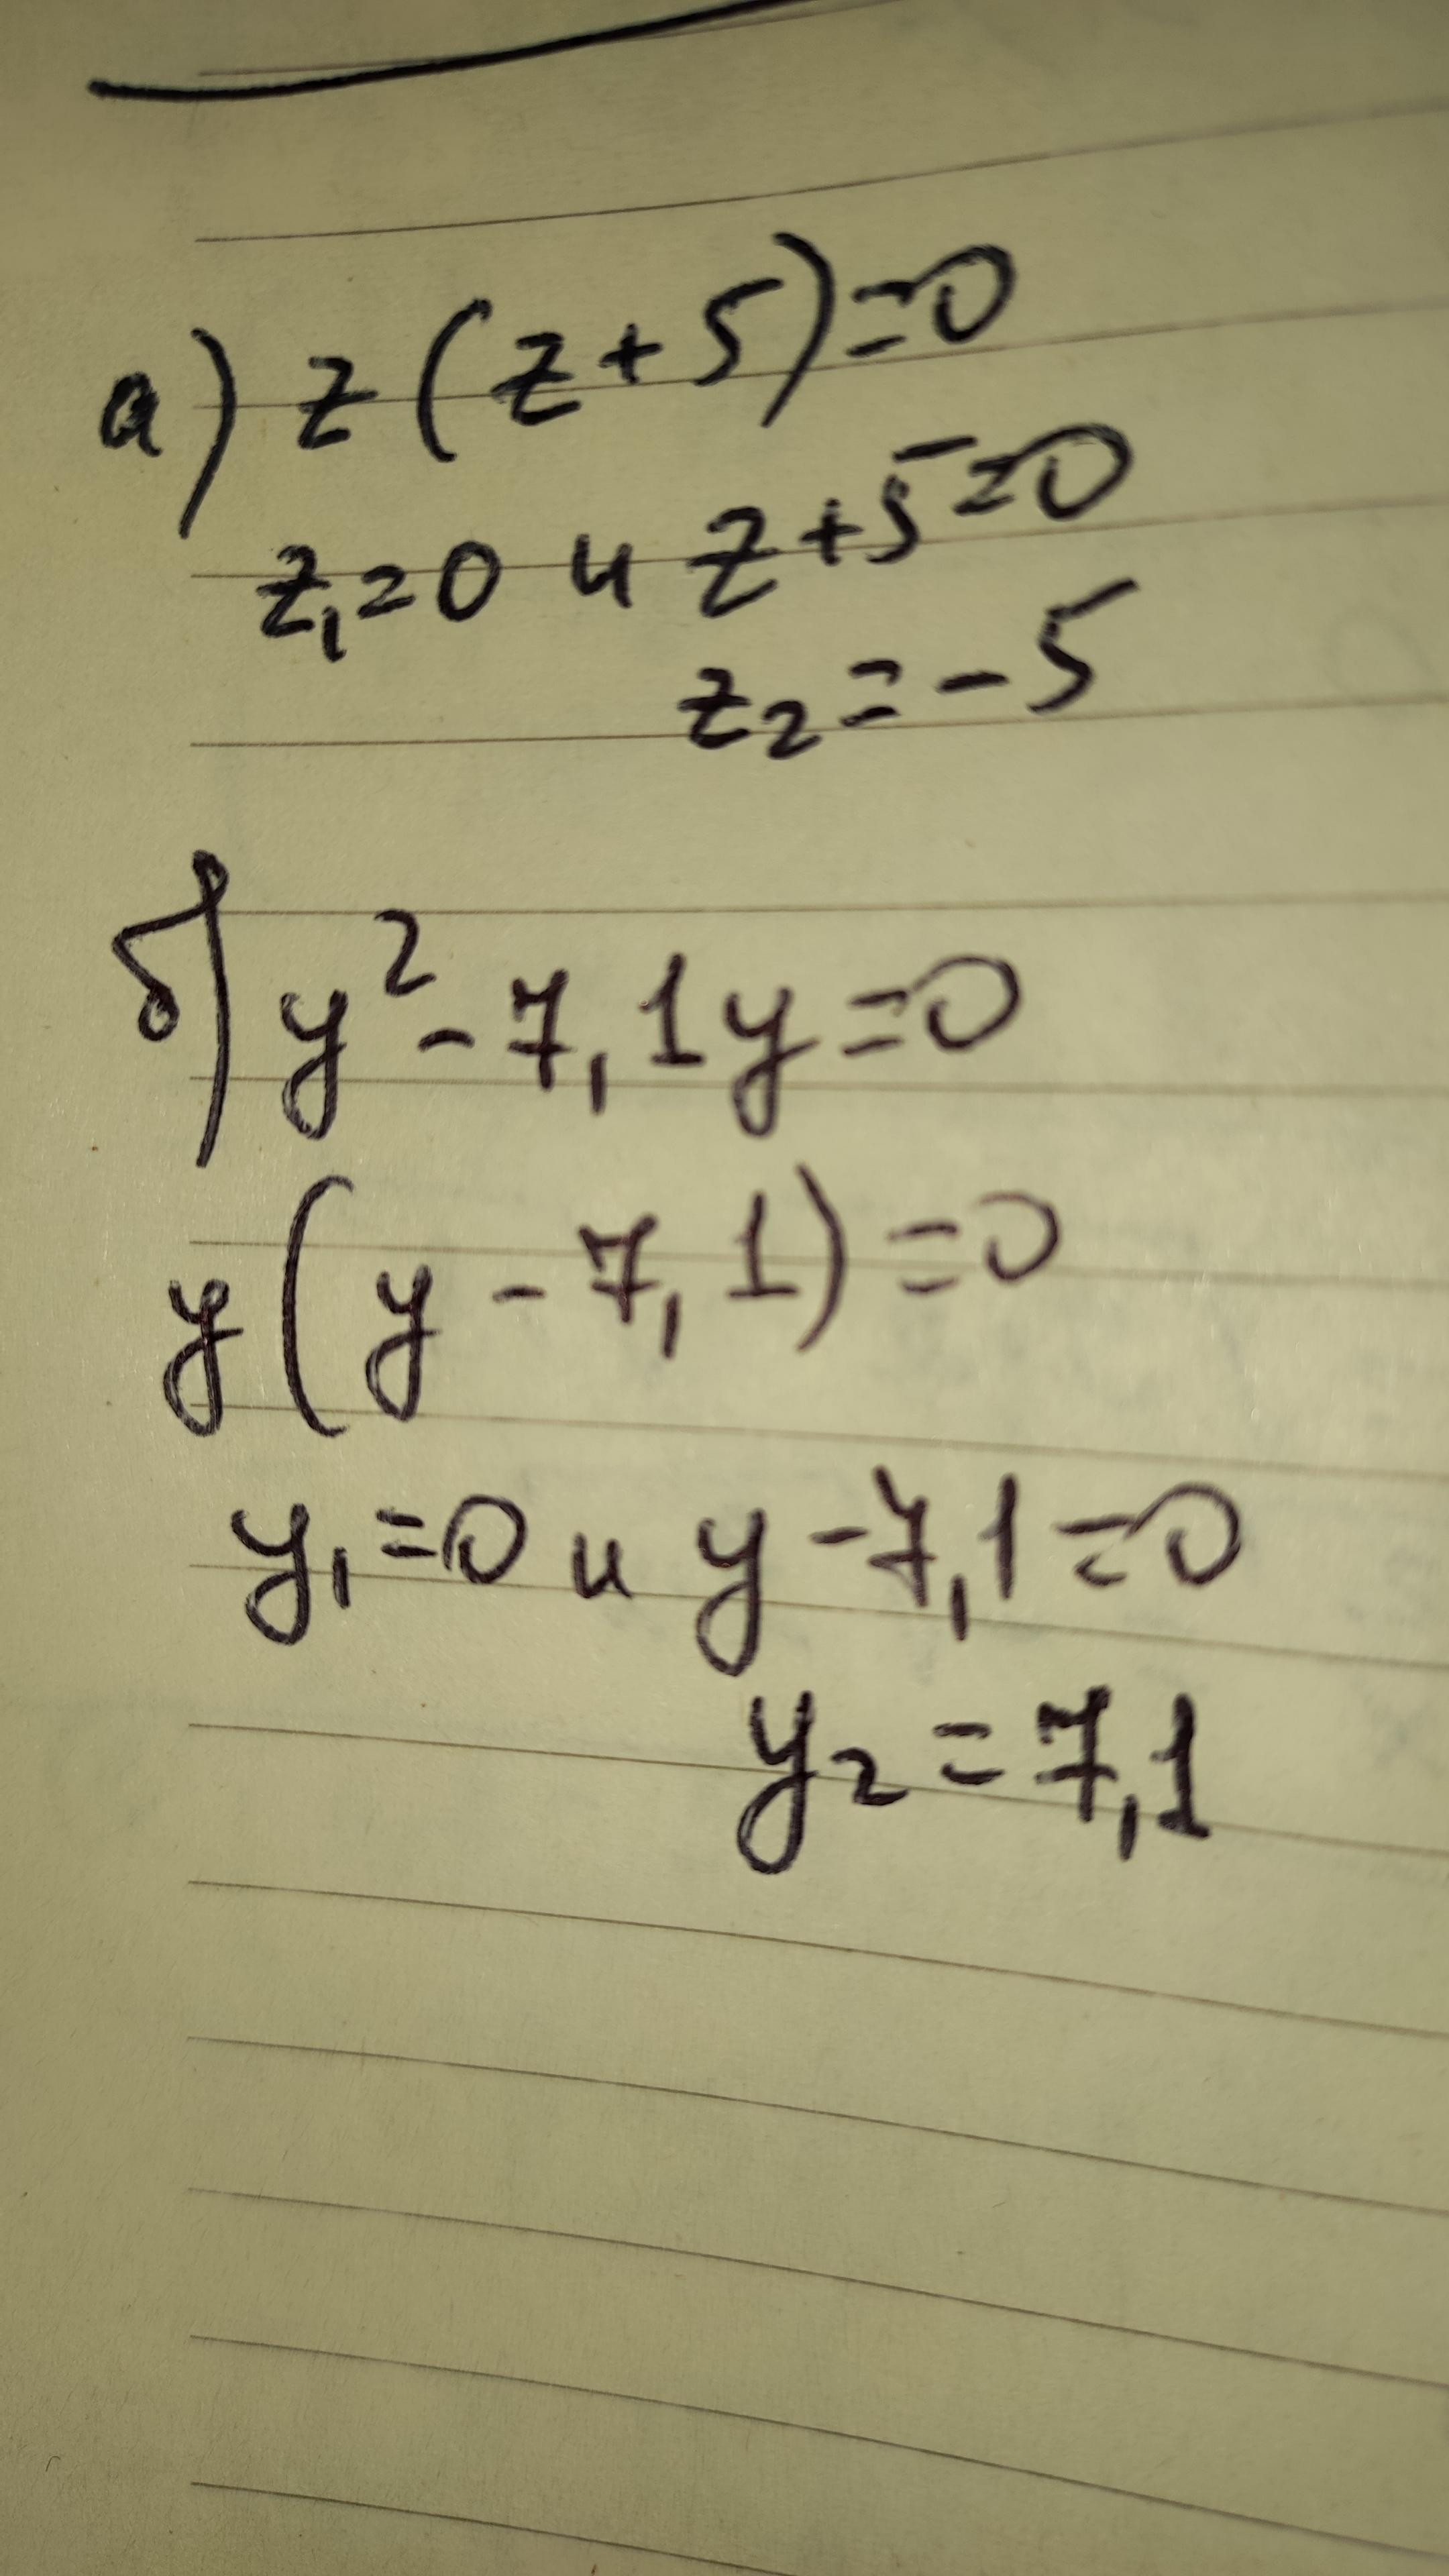 а) z(z+5)=0
z₁=0 и z+5=0
z₂=-5
б) y²-7,1y=0
y(y-7,1)=0
y₁=0 и y-7,1=0
y₂=7,1